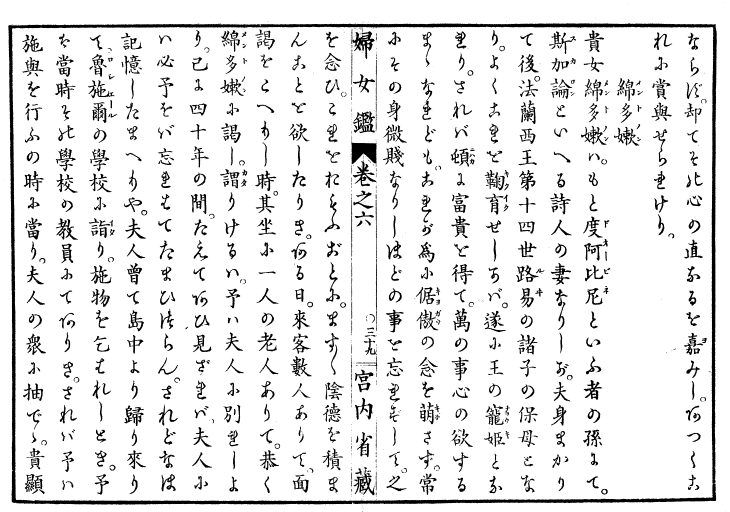 ならず。却てその心の直なるを嘉みし。あつくこ
れに賞與せられけり。
綿多嫩
貴女綿多嫩ハ。もと度阿比尼といふ者の孫にて。
斯加論といへる詩人の妻なりしが。夫身まかり
て後。法蘭西王第十四世路易の諸子の保母とな
り。よくこれを鞠育せしかバ。遂に王の寵姫とな
れり。されバ頓に富貴を得て。萬の事心の欲する
まゝなれども。これが爲に倨傲の念を萌さず。常
にその身微賤なりしほどの事を忘れずして。之
婦女鑑 卷之六 ○三十九 宮内省藏
を念ひ。これをおもふごとに。ます〱陰德を積ま
んことを欲したりき。ある日。來客數人ありて。面
謁をこへりし時。其坐に一人の老人ありて。恭く
綿多嫩に謁し。謂りけるハ。予ハ夫人に別れしよ
り。已に四十年の間。たえてあひ見ざれバ。夫人に
ハ必予をバ忘れはてたまひつらん。されどなほ
記憶したまへりや。夫人曾て島中より歸り來り
て。魯施爾の學校に詣り。施物を乞はれしとき。予
は當時その學校の教員にてありき。されバ予ハ
施與を行ふの時に當り。夫人の衆に抽でゝ。貴顯